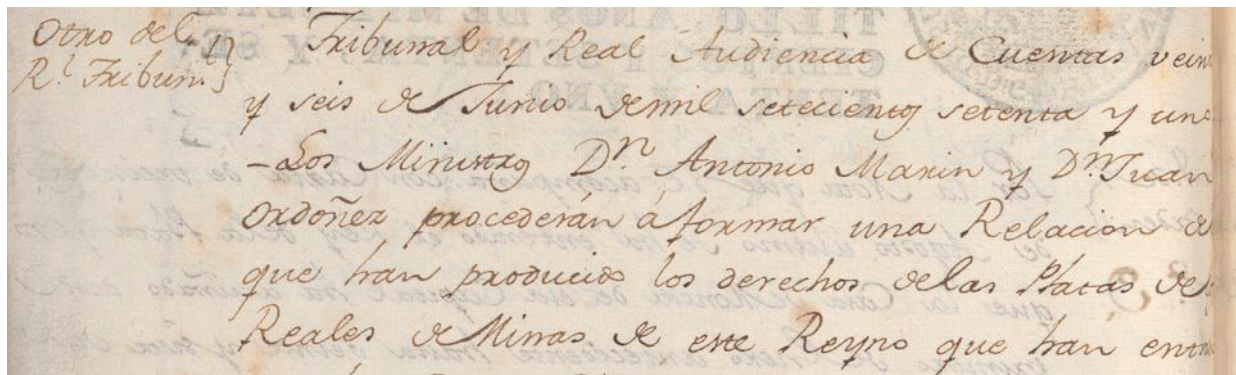 Otro del
R.l Tribun.l
Tribunal y Real Audiencia de Cuentas vein
y seis de Junio de mil setecientos setenta y uno
-Los Ministros Dn Antonio Marin y Dn Juan
Ordoñez procederán á formar una Relacion de
que han producido los derechos de las Platas de
Reales de Minas de este Reyno que han entr